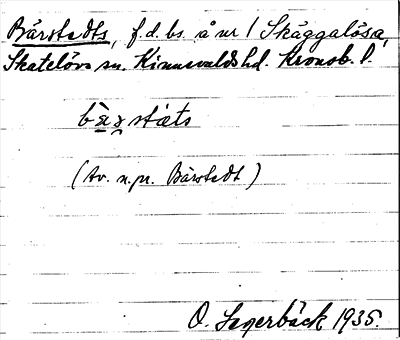 Bärstedts, f.d. bs. å nr 1 Skäggalösa,
Skatelövs sn. Kinnevalds hd. Kronob. l.
stæts
(Av. n.pr. Bärstedt)
O. Lagerbäck 1935.